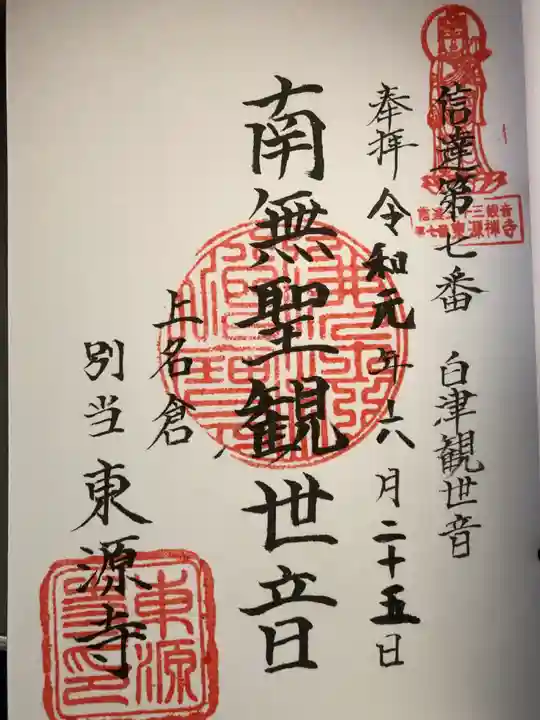 信達第七番 白津観世音
奉拝 令和元年六月二十五日
南無聖観世音
上名倉
別当 東源寺
信達三十三観音
第七番 東源禅寺
東源寺印